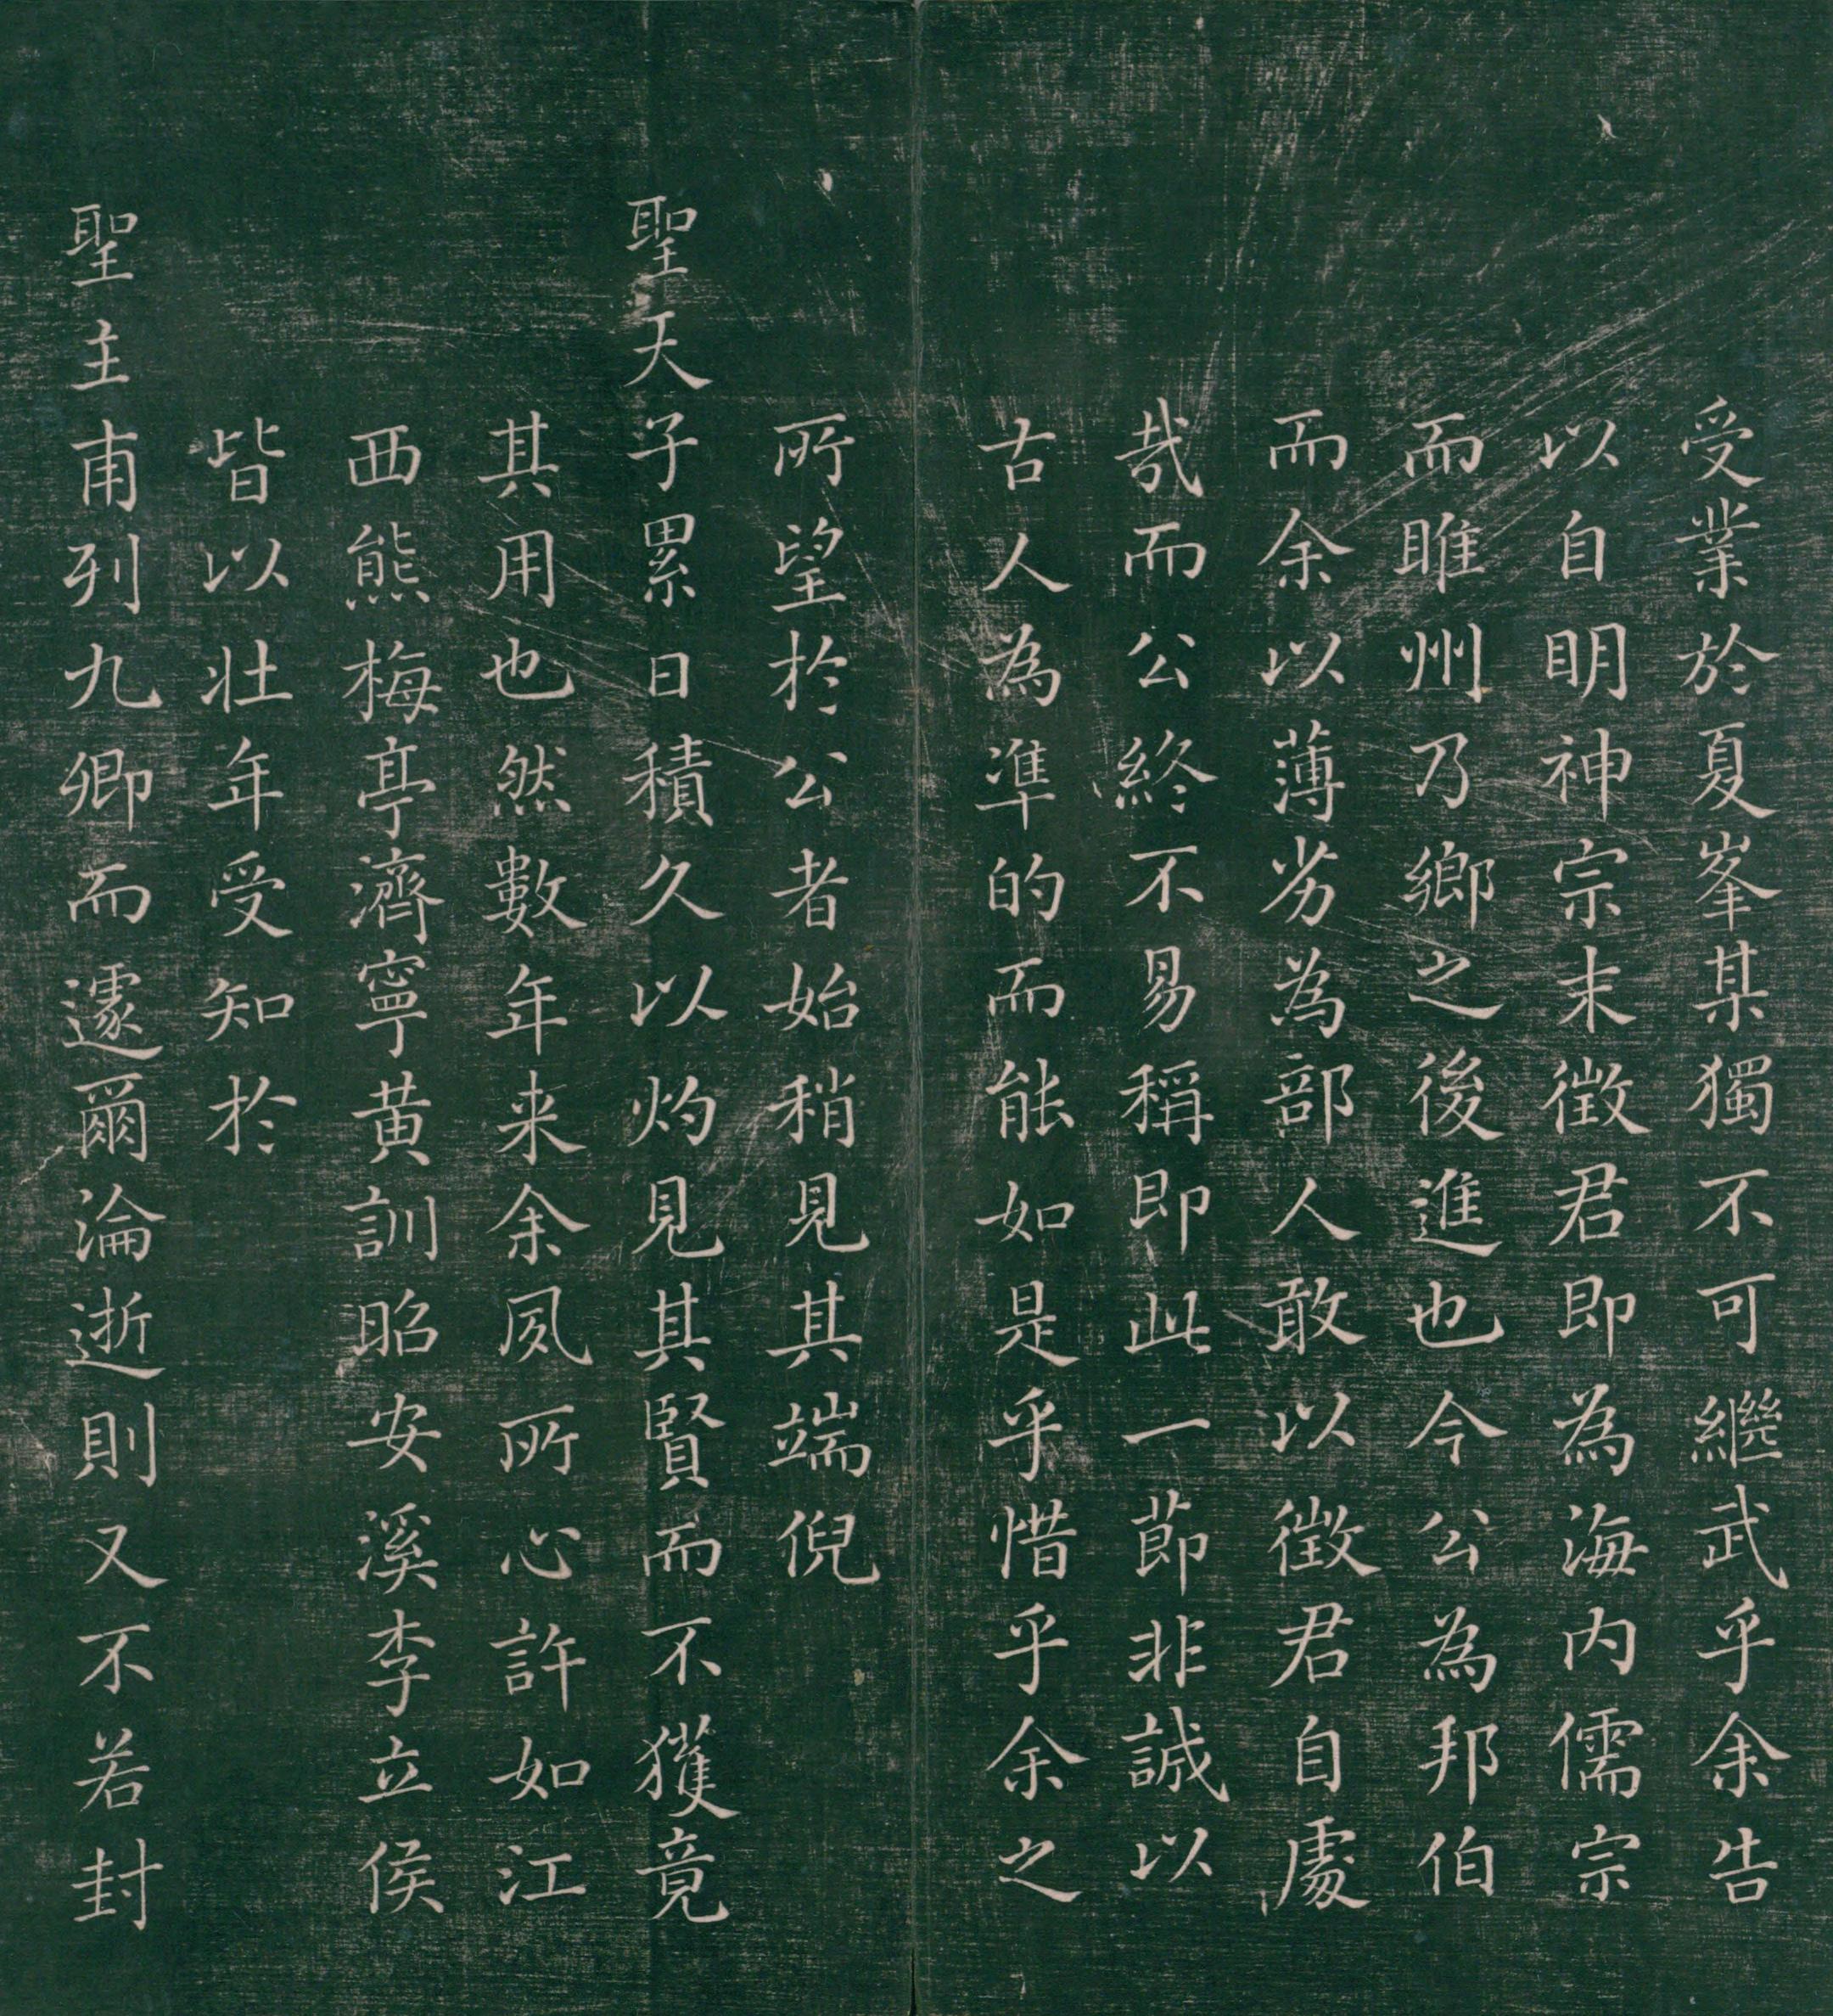 受業於夏峯某獨不可繼武乎余告
以自明神宗末徵君即為海内儒宗
而睢州乃鄉之後進也今公為邦伯
而余以薄劣為部人敢以徵君自處
哉而公終不易稱即此一節非誠以
古人為準的而能如是乎惜乎余之
所望於公者始稍見其端倪
聖天子累日積久以灼見其賢而不獲竟
其用也然數年来余夙所心許如江
西熊梅亭濟寧黄訓昭安溪李立侯
皆以壯年受知於
聖主甫列九卿而遽爾淪逝則又不若封